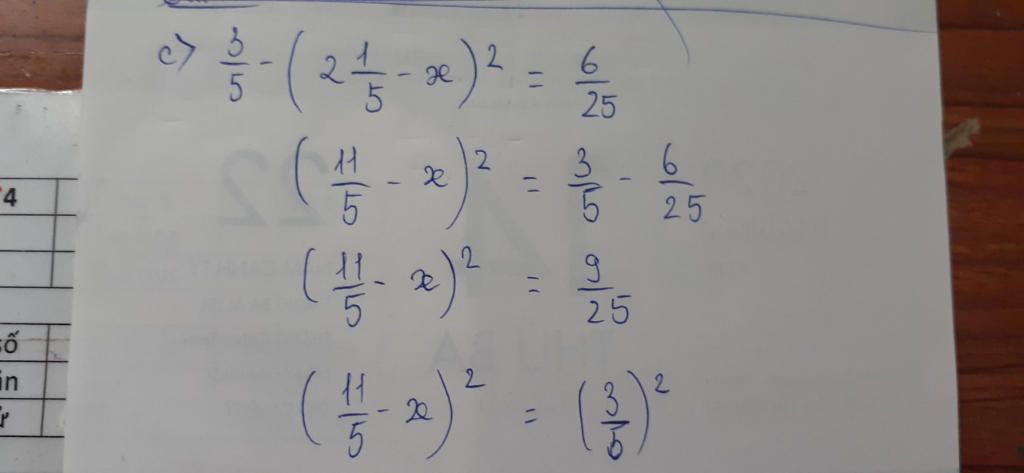 c) 3/5 - (2 1/5 - x)² = 6/25
(11/5 - x)² = 3/5 - 6/25
(11/5 - x)² = 9/25
(11/5 - x)² = (3/5)²
4
số
ử